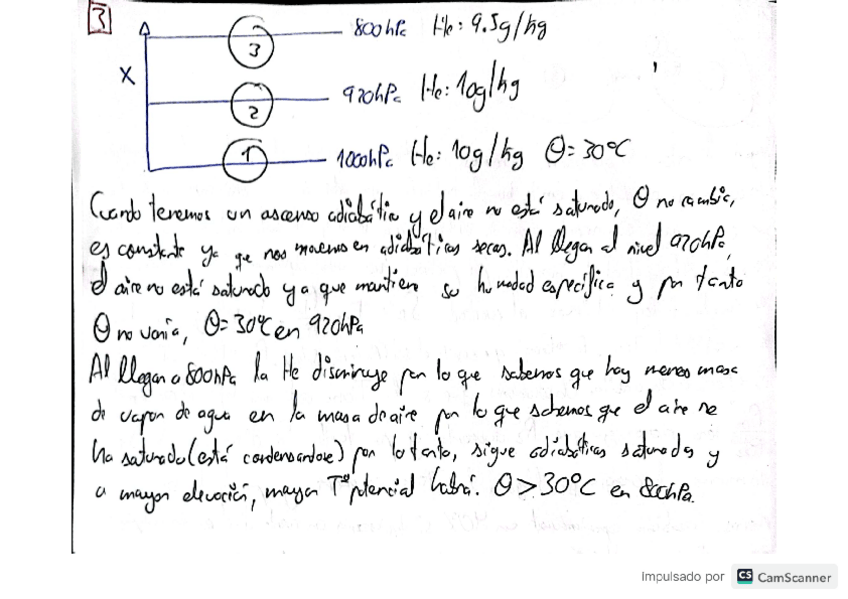 3
800hPa He: 9.5g/kg
3
X
920hPa He: 10g/kg
2
1
1000hPa He: 10g/kg θ=30ºC
Cuando tenemos un ascenso adiabático y el aire no está saturado, θ no cambia,
es constante ya que nos movemos en adiabáticas secas. Al llegar al nivel 920hPa,
el aire no está saturado ya que mantiene su humedad específica y por tanto
θ no varía, θ=30ºC en 920hPa
Al llegar a 800hPa la He disminuye por lo que sabemos que hay menos masa
de vapor de agua en la masa de aire por lo que sabemos que el aire se
ha saturado (está condensandose) por lo tanto, sigue adiabáticas saturadas y
a mayor elevación, mayor Tª potencial habrá. θ>30ºC en 800hPa.
Impulsado por CS CamScanner